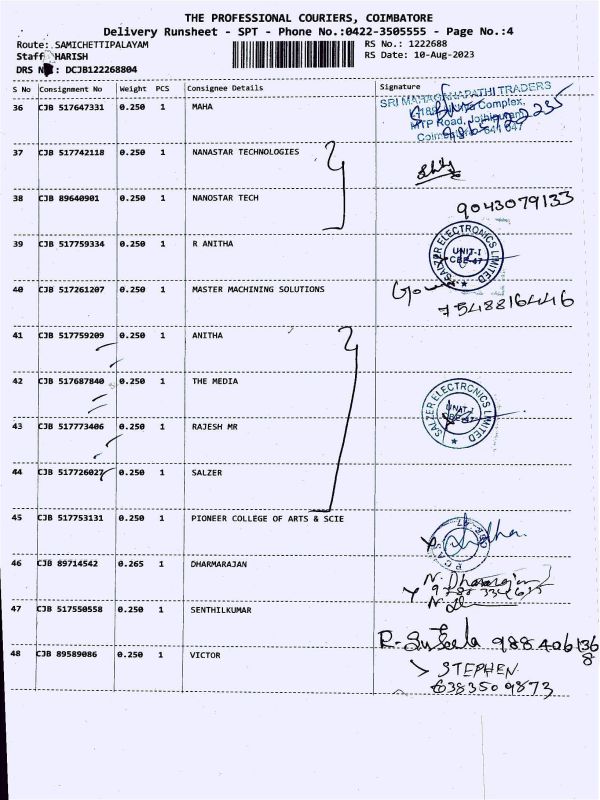 THE PROFESSIONAL COURIERS, COIMBATORE
Delivery Runsheet - SPT - Phone No.:0422-3505555 - Page No.:4
Route: SAMICHETTIPALAYAM RS No.: 1222688
Staff HARISH RS Date: 10-Aug-2023
DRS N : DCJB122268804
S No Consignment No Weight PCS Consignee Details Signature
36 CJB 517647331 0.250 1 MAHA
SRI MAHAGANAPATHI TRADERS
Complex,
MTP Road, Jothipuram
641 047
37 CJB 517742118 0.250 1 NANASTAR TECHNOLOGIES
38 CJB 89640901 0.250 1 NANOSTAR TECH 9043079133
39 CJB 517759334 0.250 1 R ANITHA
SALZER ELECTRONICS LIMITED
UNIT-I
CBE-47
40 CJB 517261207 0.250 1 MASTER MACHINING SOLUTIONS
7548816446
41 CJB 517759209 0.250 1 ANITHA
42 CJB 517687840 0.250 1 THE MEDIA
SALZER ELECTRONICS LIMITED
UNIT-I
CBE-47
43 CJB 517773406 0.250 1 RAJESH MR
44 CJB 517726027 0.250 1 SALZER
45 CJB 517753131 0.250 1 PIONEER COLLEGE OF ARTS & SCIE
46 CJB 89714542 0.265 1 DHARMARAJAN
N. Dharmarajan
47 CJB 517550558 0.250 1 SENTHILKUMAR
R. Suseela 9884061368
48 CJB 89589086 0.250 1 VICTOR
STEPHEN
6383509873